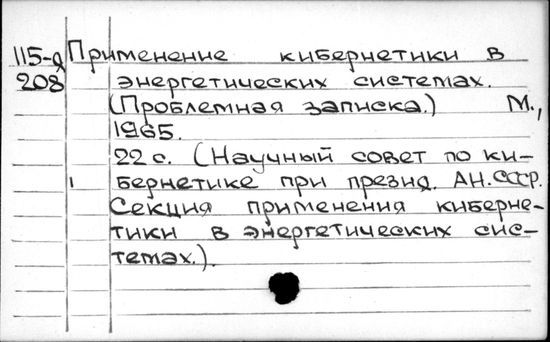 115-д Применение кибернетики в
208 энергетических системах.
(Проблемная записка.) М.,
1965.
22 с. (Научный совет по ки-
бернетике при презид. АН.СССР.
Секция применения киберне-
тики в энергетических сис-
темах.).